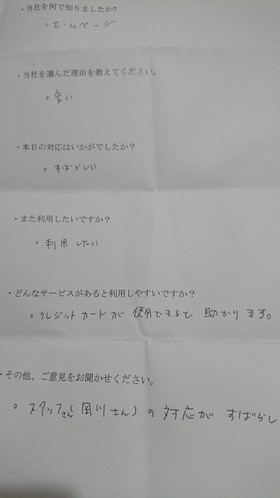 ・当社を何で知りましたか?
。ホームページ
・当社を選んだ理由を教えてください。
。安い
・本日の対応はいかがでしたか?
。すばらしい
・また利用したいですか?
。利用したい
・どんなサービスがあると利用しやすいですか?
。クレジットカードが使用できると助かります。
・その他、ご意見をお聞かせください。
。スタッフさん(国川さん)の対応がすばらし